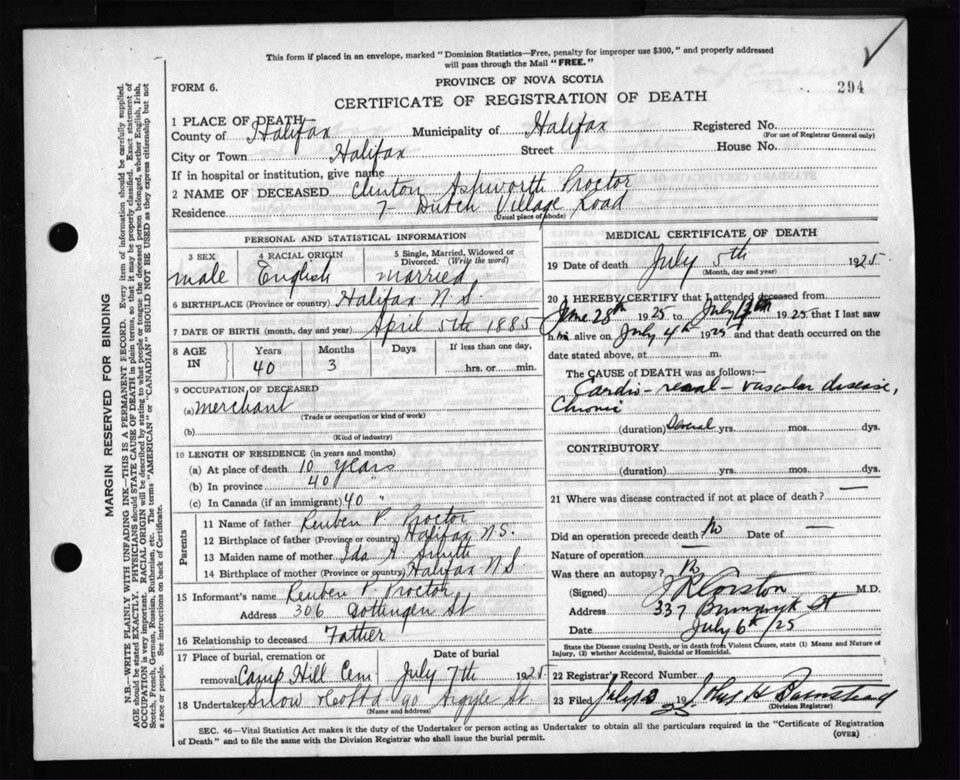 This form if placed in an envelope, marked "Dominion Statistics—Free, penalty for improper use $300," and properly addressed
will pass through the Mail "FREE."
PROVINCE OF NOVA SCOTIA
294
FORM 6.
CERTIFICATE OF REGISTRATION OF DEATH
1 PLACE OF DEATH
County of Halifax Municipality of Halifax Registered No.
(For use of Registrar General only)
City or Town Halifax Street House No.
If in hospital or institution, give name
2 NAME OF DECEASED Clinton Ashworth Proctor
Residence 7 Dutch Village Road
(Usual place of abode)
PERSONAL AND STATISTICAL INFORMATION
3 SEX 4 RACIAL ORIGIN 5 Single, Married, Widowed or
Divorced. (Write the word)
male English married
6 BIRTHPLACE (Province or country) Halifax N.S.
7 DATE OF BIRTH (month, day and year) April 5th 1885
8 AGE IN Years Months Days If less than one day,
40 3 hrs. or min.
9 OCCUPATION OF DECEASED
(a) merchant
(Trade or occupation or kind of work)
(b)
(Kind of industry)
10 LENGTH OF RESIDENCE (in years and months)
(a) At place of death 10 years
(b) In province 40 "
(c) In Canada (if an immigrant) 40 "
Parents
11 Name of father Reuben P. Proctor
12 Birthplace of father (Province or country) Halifax N.S.
13 Maiden name of mother Ida A. Smith
14 Birthplace of mother (Province or country) Halifax N.S.
15 Informant's name Reuben P. Proctor
Address 306 Gottingen St
16 Relationship to deceased Father
17 Place of burial, cremation or removal Date of burial
Camp Hill Cem July 7th 1925
18 Undertaker Snow & Co Ltd 90 Argyle St.
(Name and address)
MEDICAL CERTIFICATE OF DEATH
19 Date of death July 5th 1925
(Month, day and year)
20 I HEREBY CERTIFY that I attended deceased from
June 28th 1925 to July 1925 that I last saw
him alive on July 4th 1925 and that death occurred on the
date stated above, at m.
The CAUSE OF DEATH was as follows:—
Cardio-renal-vascular disease,
Chronic
(duration) Several yrs. mos. dys.
CONTRIBUTORY.
(duration) yrs. mos. dys.
21 Where was disease contracted if not at place of death? —
Did an operation precede death No Date of —
Nature of operation —
Was there an autopsy? No
(Signed) M.D.
Address 337 Brunswick St
Date July 6th/25
State the Disease causing Death, or in death from Violent Causes, state (1) Means and Nature of
Injury, (2) whether Accidental, Suicidal or Homicidal.
22 Registrar's Record Number
23 Filed July 19 John H Barnstead
(Division Registrar)
SEC. 46—Vital Statistics Act makes it the duty of the Undertaker or person acting as Undertaker to obtain all the particulars required in the "Certificate of Registration
of Death" and to file the same with the Division Registrar who shall issue the burial permit.
(OVER)
MARGIN RESERVED FOR BINDING
N.B.—WRITE PLAINLY WITH UNFADING INK—THIS IS A PERMANENT RECORD. Every item of information should be carefully supplied.
AGE should be stated EXACTLY. PHYSICIANS should STATE CAUSE OF DEATH in plain terms, so that it may be properly classified. Exact statement of
OCCUPATION is very important. RACIAL ORIGIN will be described by stating to what people or tongue the deceased person belonged, whether English, Irish,
Scotch, French, German, Russian, Ruthenian, etc. The terms "AMERICAN" or "CANADIAN" SHOULD NOT BE USED as they express citizenship but not
a race or people. See instructions on back of Certificate.